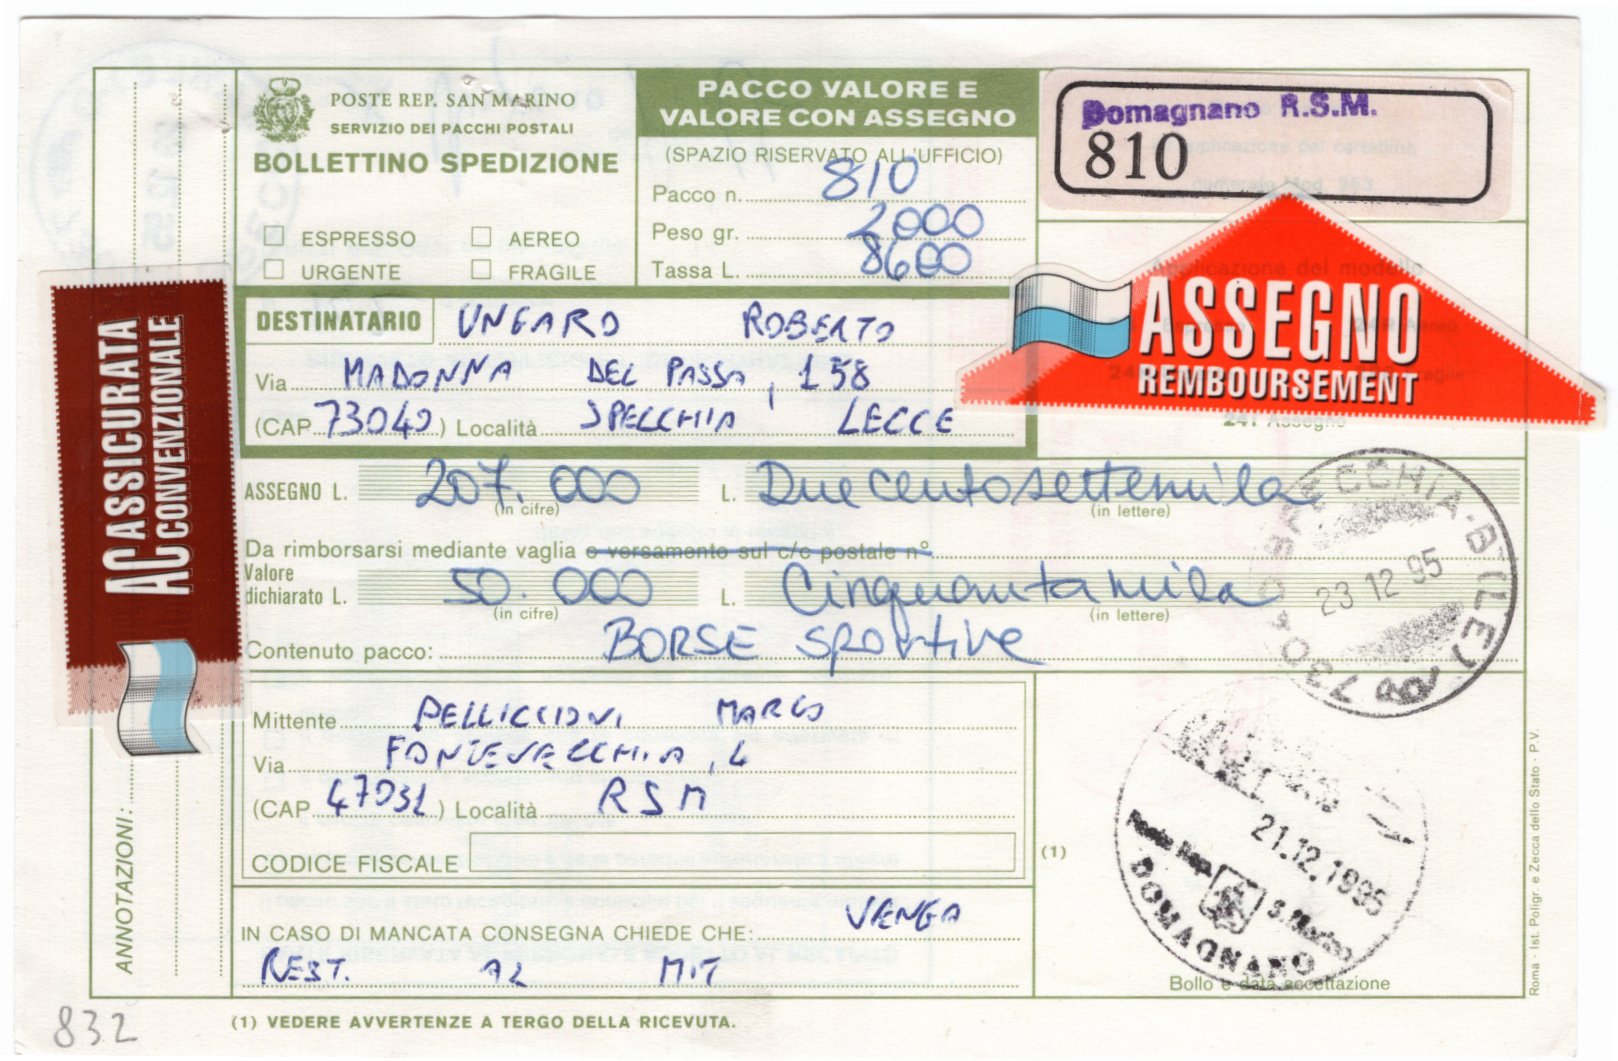 POSTE REP. SAN MARINO
SERVIZIO DEI PACCHI POSTALI
BOLLETTINO SPEDIZIONE
ESPRESSO AEREO
URGENTE FRAGILE
PACCO VALORE E
VALORE CON ASSEGNO
(SPAZIO RISERVATO ALL'UFFICIO)
Pacco n. 810
Peso gr. 2000
Tassa L. 8600
Domagnano R.S.M.
810
ASSEGNO
REMBOURSEMENT
241 Assegno
AC ASSICURATA
AC CONVENZIONALE
DESTINATARIO UNGARO ROBERTO
Via MADONNA DEL PASSO, 158
(CAP 73040) Località SPECCHIA LECCE
ASSEGNO L. 207.000 L. Duecentosettemila
(in cifre) (in lettere)
Da rimborsarsi mediante vaglia o versamento sul c/c postale n°
Valore
dichiarato L. 50.000 L. Cinquantamila
(in cifre) (in lettere)
Contenuto pacco: BORSE SPORTIVE
23 12 95
Mittente PELLICCIONI MARCO
Via FONTEVECCHIA, 4
(CAP 47031) Località RSM
CODICE FISCALE
(1)
21.12.1995
Poste Rep. S. Marino
DOMAGNANO
Bollo e data accettazione
IN CASO DI MANCATA CONSEGNA CHIEDE CHE: VENGA
REST. AL MIT
ANNOTAZIONI:
(1) VEDERE AVVERTENZE A TERGO DELLA RICEVUTA.
832
Roma - Ist. Poligr. e Zecca dello Stato - P.V.